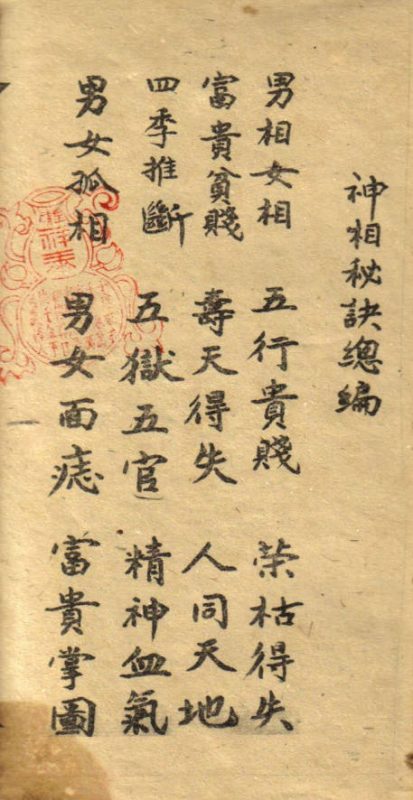 神相秘訣總編
男相女相 五行貴賤 荣枯得失
富貴貧賤 壽天得失 人同天地
四季推斷 五嶽五官 精神血氣
男女孤相 男女面痣 富貴掌圖